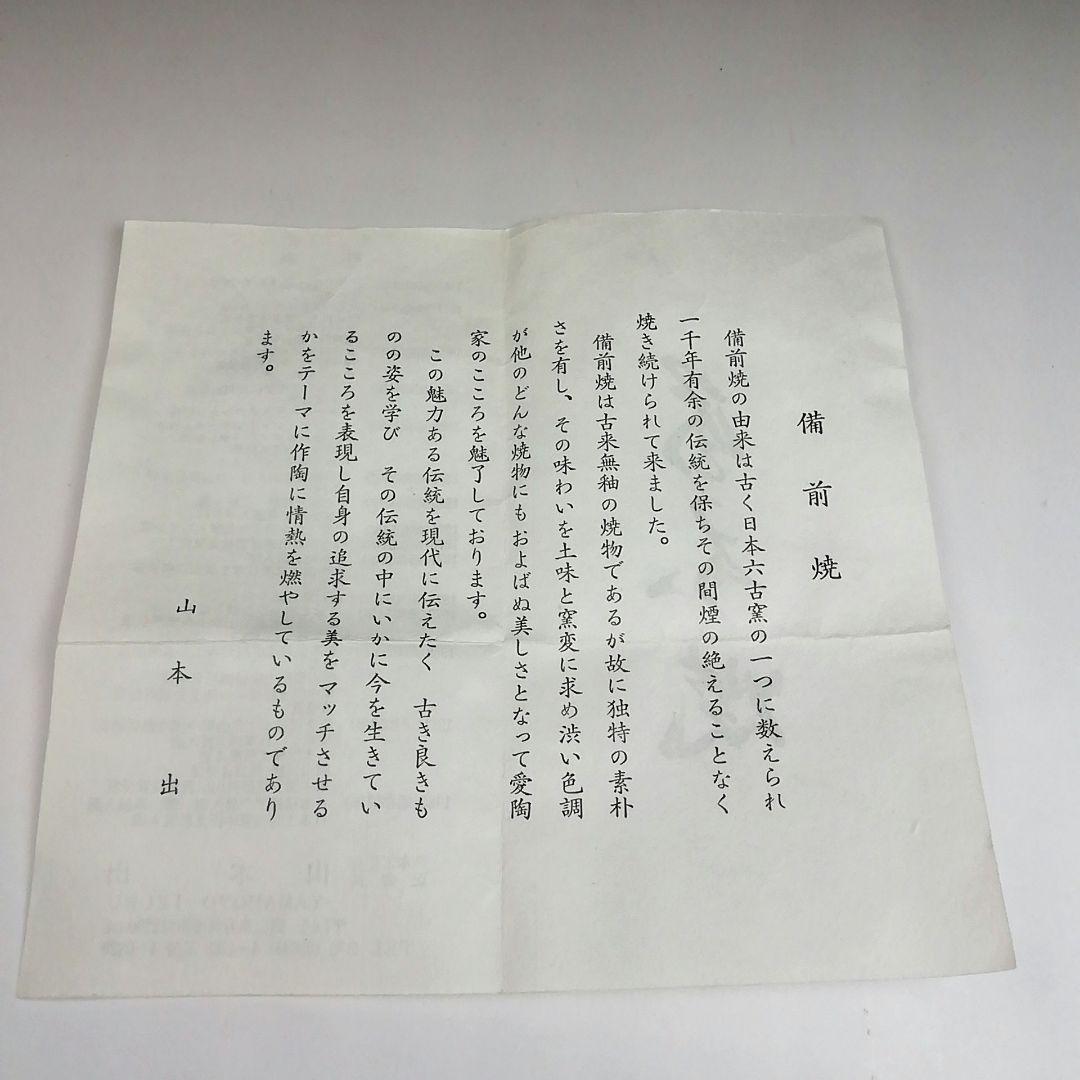 備前焼
備前焼の由来は古く日本六古窯の一つに数えられ
一千年有余の伝統を保ちその間煙の絶えることなく
焼き続けられて来ました。
備前焼は古来無釉の焼物であるが故に独特の素朴
さを有し、その味わいを土味と窯変に求め渋い色調
が他のどんな焼物にもおよばぬ美しさとなって愛陶
家のこころを魅了しております。
この魅力ある伝統を現代に伝えたく 古き良きも
のの姿を学び その伝統の中にいかに今を生きてい
るこころを表現し自身の追求する美を マッチさせる
かをテーマに作陶に情熱を燃やしているものであり
ます。
山本出